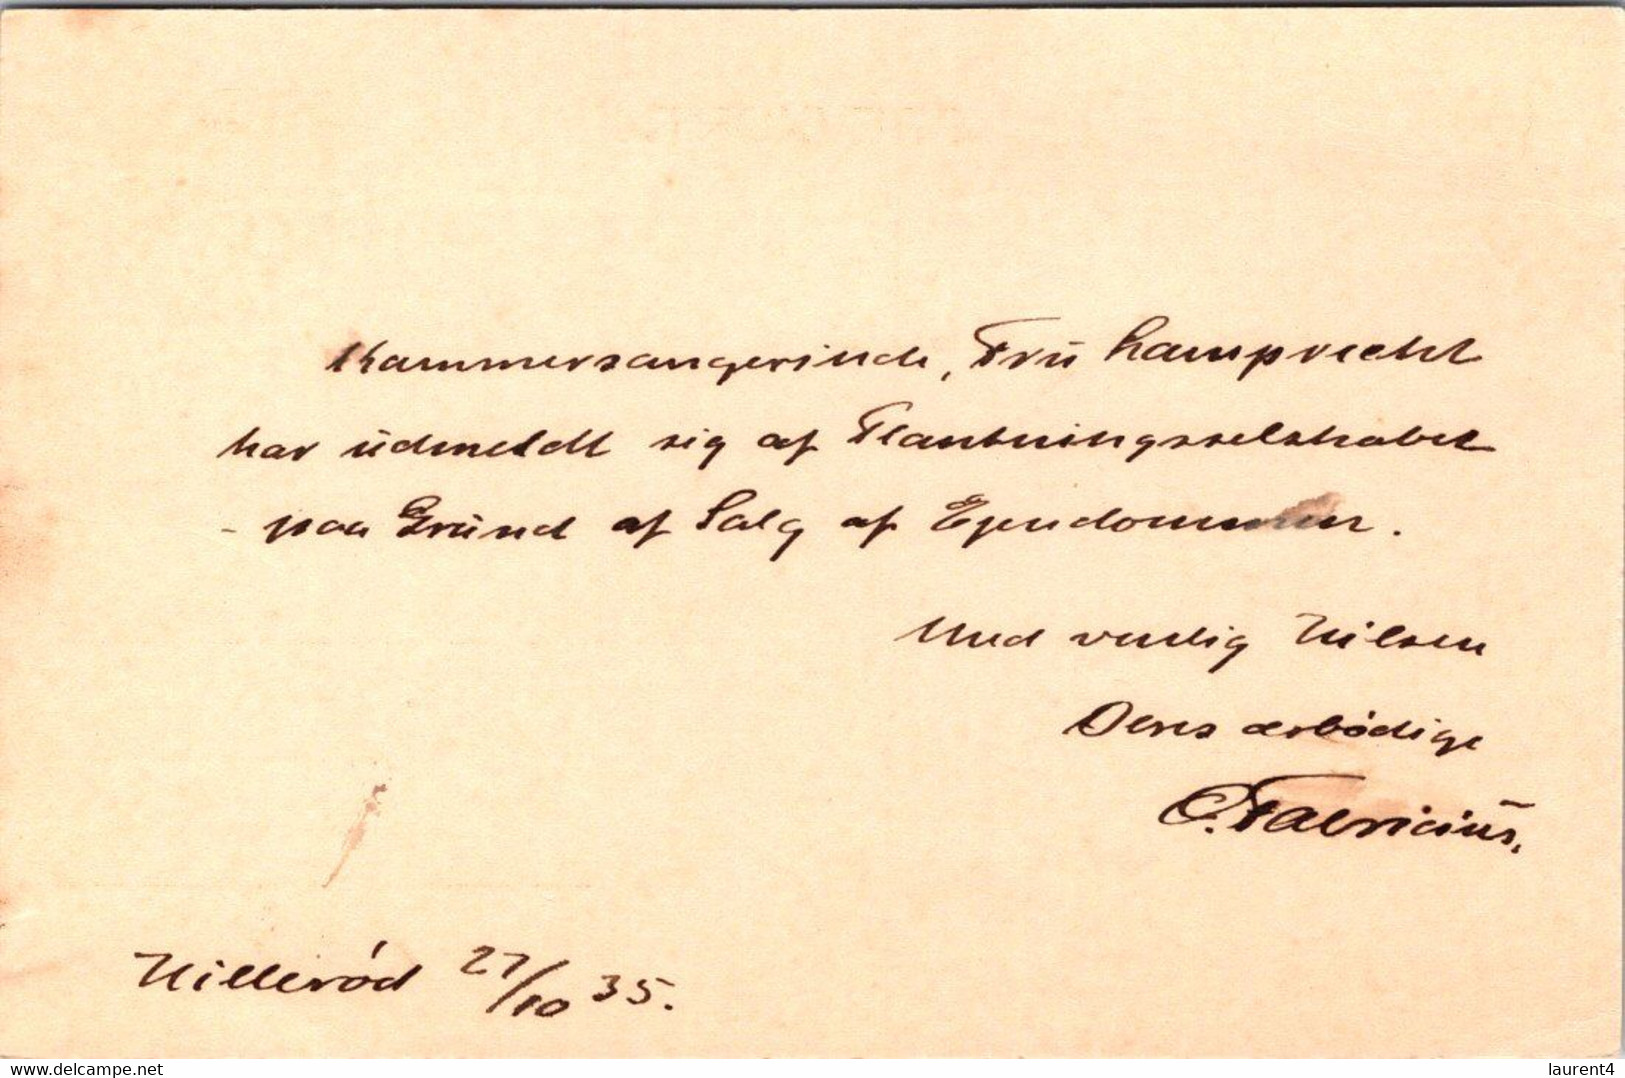 Kammersangerinde, Frú Lamprecht
har údmeldt sig af Plantningsselskabet
- paa Grúnd af Salg af Ejendommen.
Med venlig Hilsen
Deres ærbódige
C. Fabriciús.
Hilleród 27/10 35.
www.delcampe.net
laurent4